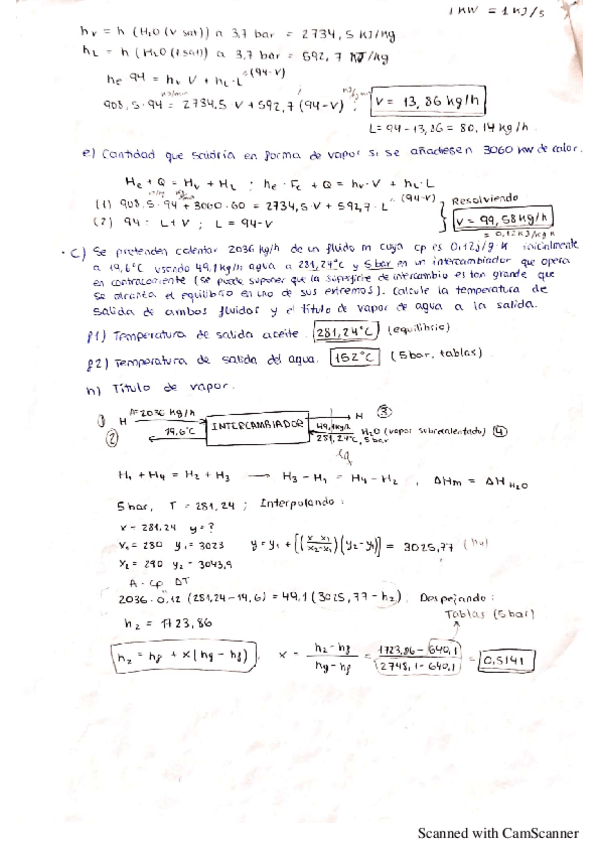 1 KW = 1 KJ/s
hv = h (H2O (v sat)) a 3,7 bar = 2734,5 KJ/Kg
hL = h (H2O (l sat)) a 3,7 bar = 592,7 KJ/Kg
he 94 = hv V + hL·L (94-V)
908,5·94 = 2734,5·V + 592,7 (94-V) ; V = 13,86 kg/h
L = 94 - 13,86 = 80,14 kg/h.
e) Cantidad que saldría en forma de vapor si se añadiesen 3060 kW de calor.
He + Q = Hv + HL ; he·Fe + Q = hv·V + hL·L
(1) 908,5·94 + 3060·60 = 2734,5·V + 592,7·L (94-V)
Resolviendo
(2) 94 = L+V ; L = 94-V
V = 99,58 kg/h
= 0,12 KJ/kg K
· c) Se pretenden calentar 2036 kg/h de un fluido m cuya cp es 0,12 j/g·K inicialmente
a 19,6°C usando 49,1 kg/h agua a 281,24°C y 5 bar en un intercambiador que opera
en contracorriente (se puede suponer que la superficie de intercambio es tan grande que
se alcanza el equilibrio en uno de sus extremos). Calcule la temperatura de
salida de ambos fluidos y el título de vapor de agua a la salida.
g1) Temperatura de salida aceite. 281,24°C (equilibrio)
g2) Temperatura de salida del agua. 152°C (5 bar, tablas)
h) Título de vapor.
① M 2036 kg/h
INTERCAMBIADOR
M ③
② 19,6°C
49,1 kg/h
281,24°C, 5 bar
H2O (vapor sobrecalentado) ④
H1 + H4 = H2 + H3 → H3 - H1 = H4 - H2 , ΔHm = ΔH H2O
5 bar, T = 281,24 ; Interpolando :
x = 281,24 y = ?
x1 = 280 y1 = 3023 y = y1 + [(x-x1/x2-x1)(y2-y1)] = 3025,77 (h4)
x2 = 290 y2 = 3043,9
m · Cp ΔT
2036·0,12 (281,24-19,6) = 49,1 (3025,77 - h2) ; Despejando :
Tablas (5 bar)
h2 = 1723,86
h2 = hf + x (hg - hf) . x = h2-hf / hg-hf = 1723,86 - 640,1 / 2748,1 - 640,1 = 0,5141
Scanned with CamScanner